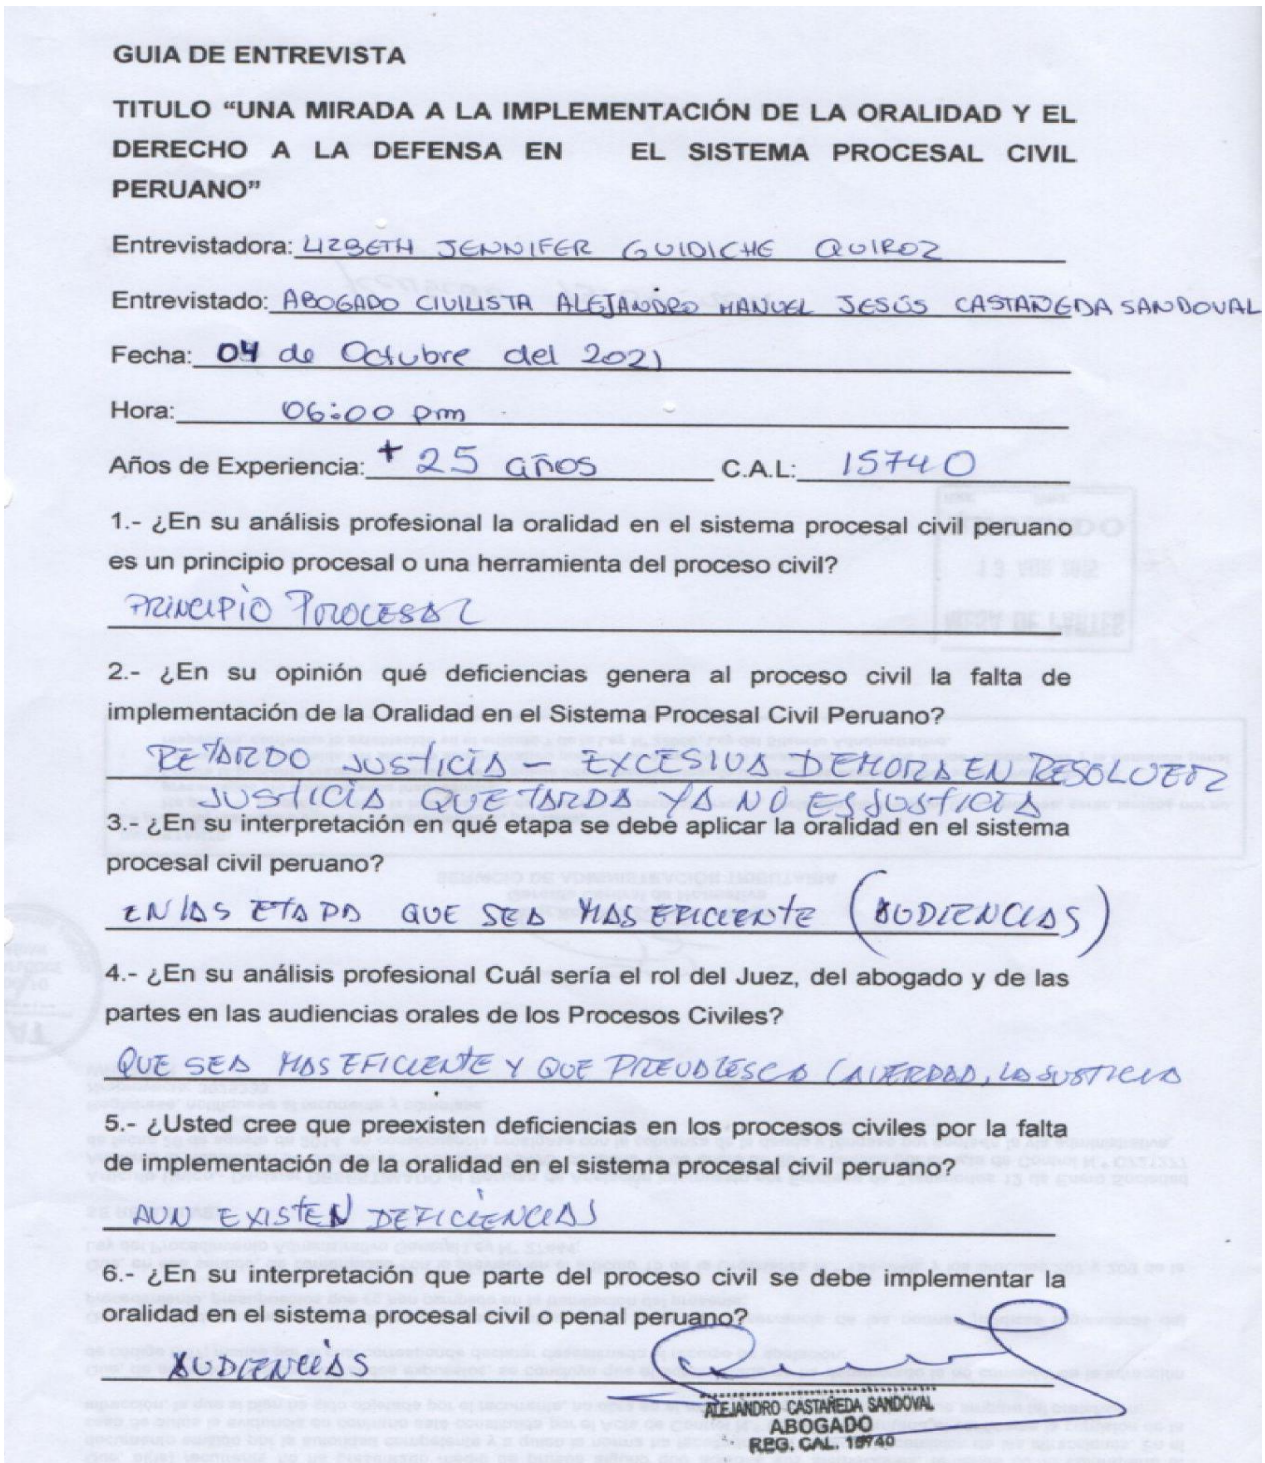 GUIA DE ENTREVISTA
TITULO “UNA MIRADA A LA IMPLEMENTACIÓN DE LA ORALIDAD Y EL
DERECHO A LA DEFENSA EN EL SISTEMA PROCESAL CIVIL
PERUANO”
Entrevistadora: LIZBETH JENNIFER GUIDICHE QUIROZ
Entrevistado: ABOGADO CIVILISTA ALEJANDRO MANUEL JESÚS CASTAÑEDA SANDOVAL
Fecha: 04 de Octubre del 2021
Hora: 06:00 pm
Años de Experiencia: + 25 años C.A.L: 15740
1.- ¿En su análisis profesional la oralidad en el sistema procesal civil peruano
es un principio procesal o una herramienta del proceso civil?
PRINCIPIO PROCESAL
2.- ¿En su opinión qué deficiencias genera al proceso civil la falta de
implementación de la Oralidad en el Sistema Procesal Civil Peruano?
RETARDO JUSTICIA – EXCESIVA DEMORA EN RESOLVER
JUSTICIA QUE TARDA YA NO ES JUSTICIA
3.- ¿En su interpretación en qué etapa se debe aplicar la oralidad en el sistema
procesal civil peruano?
EN LAS ETAPA QUE SEA MAS EFICIENTE (AUDIENCIAS)
4.- ¿En su análisis profesional Cuál sería el rol del Juez, del abogado y de las
partes en las audiencias orales de los Procesos Civiles?
QUE SEA MAS EFICIENTE Y QUE PREVALESCA LA VERDAD, LA JUSTICIA
5.- ¿Usted cree que preexisten deficiencias en los procesos civiles por la falta
de implementación de la oralidad en el sistema procesal civil peruano?
AUN EXISTEN DEFICIENCIAS
6.- ¿En su interpretación que parte del proceso civil se debe implementar la
oralidad en el sistema procesal civil o penal peruano?
AUDIENCIAS
ALEJANDRO CASTAÑEDA SANDOVAL
ABOGADO
REG. CAL. 15740